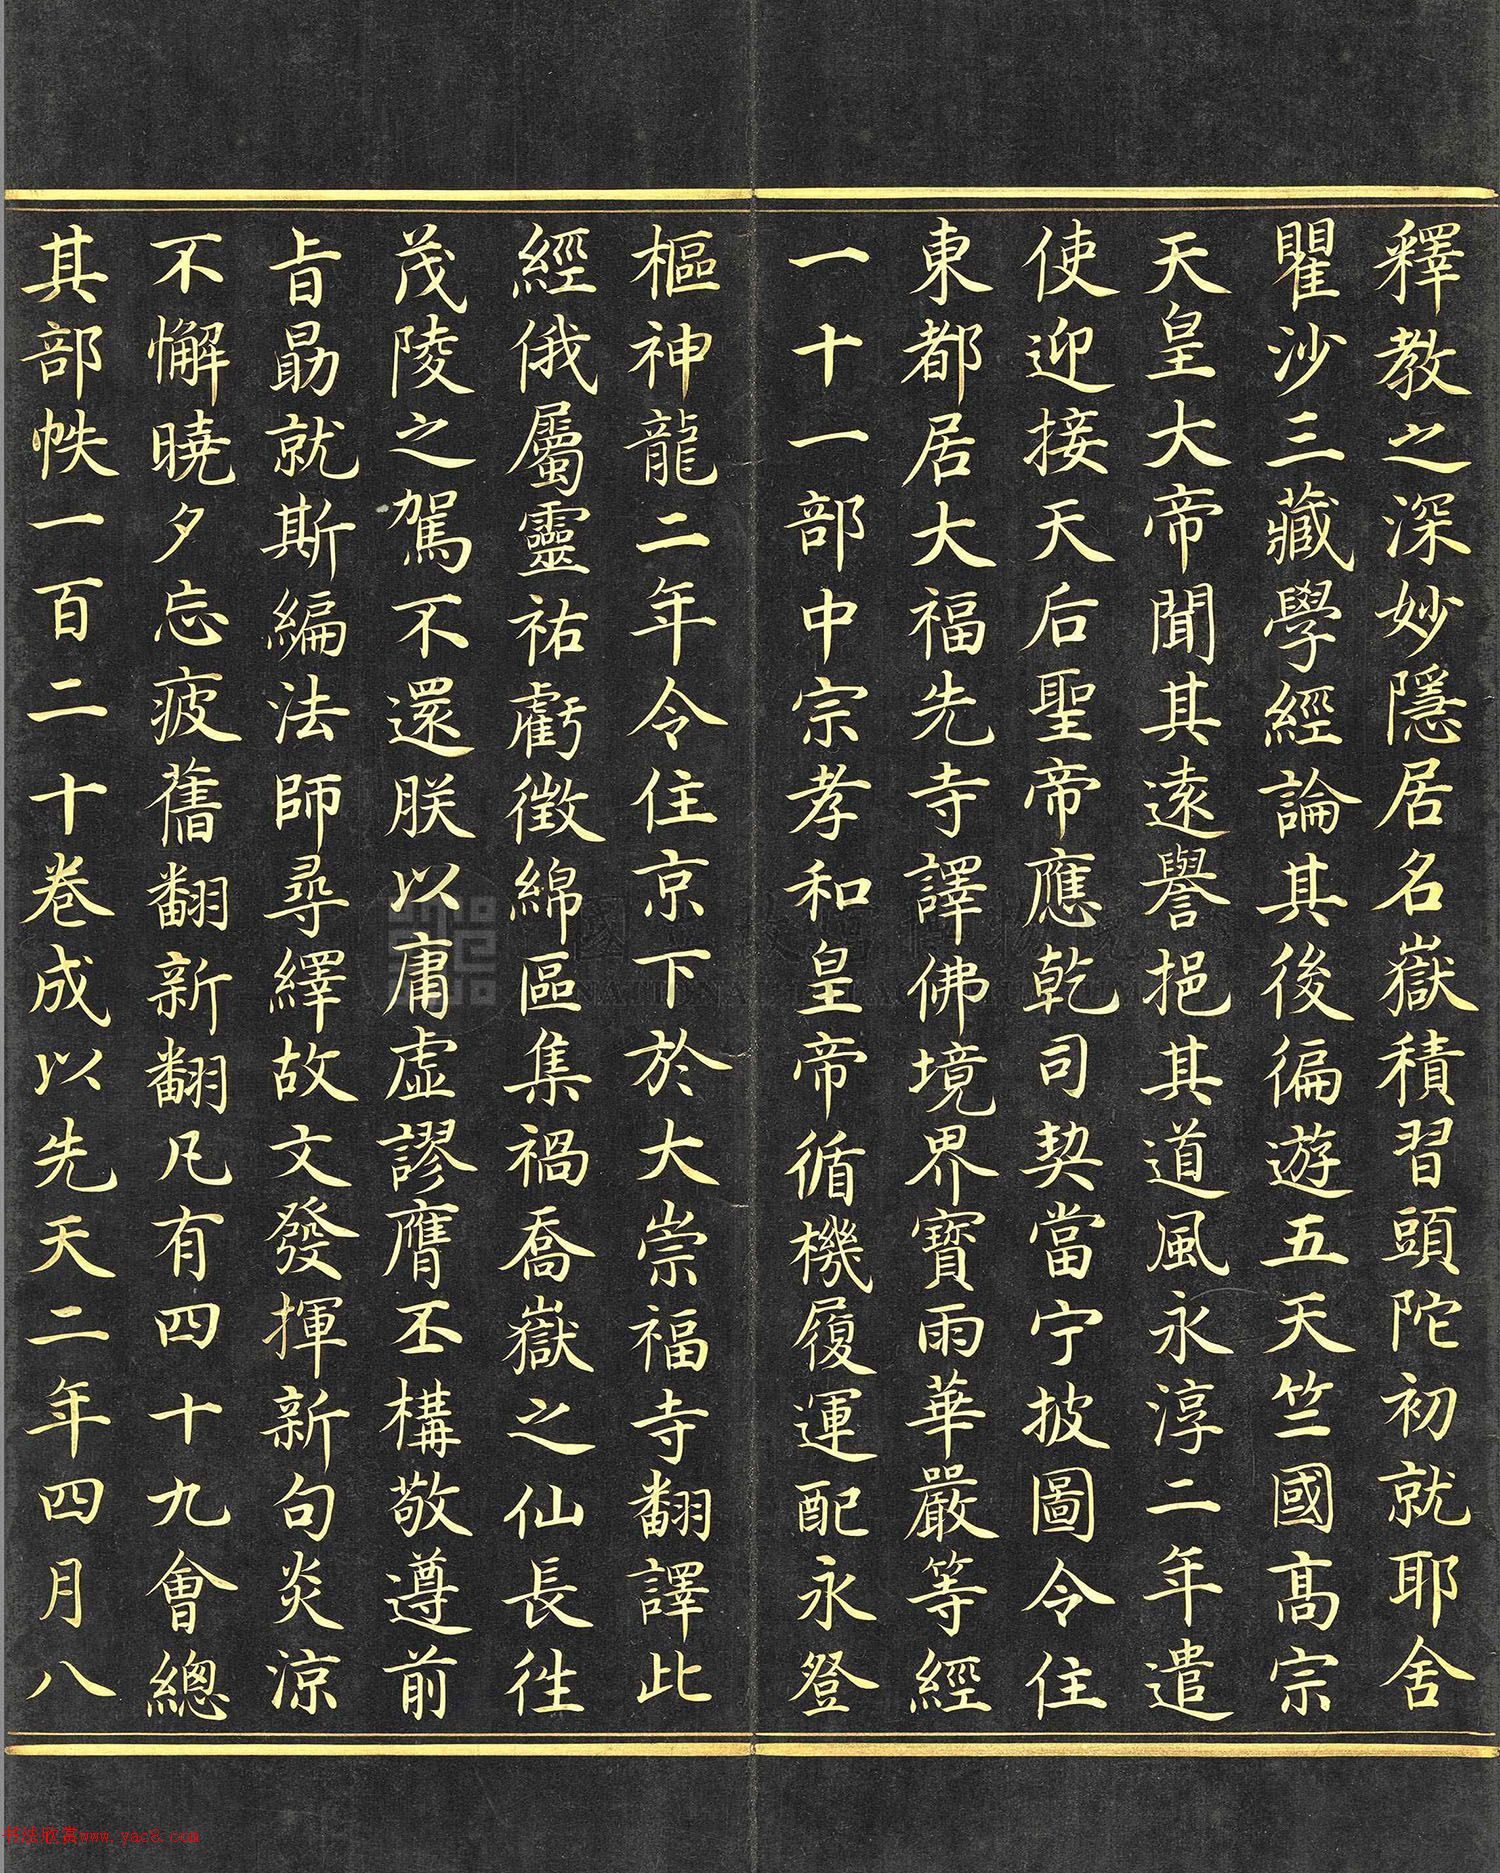 釋教之深妙隱居名嶽積習頭陀初就耶舍
瞿沙三藏學經論其後徧遊五天竺國髙宗
天皇大帝聞其遠譽挹其道風永淳二年遣
使迎接天后聖帝應乾司契當宁披圖令住
東都居大福先寺譯佛境界寶雨華嚴等經
一十一部中宗孝和皇帝循機履運配永登
樞神龍二年令住京下於大崇福寺翻譯此
經俄屬靈祐虧徴綿區集禍喬嶽之仙長徃
茂陵之駕不還朕以庸虛謬膺丕構敬遵前
旨勗就斯編法師尋繹故文發揮新句炎涼
不懈曉夕忘疲舊翻新翻凡有四十九會總
其部帙一百二十卷成以先天二年四月八
书法欣赏www.yac8.com